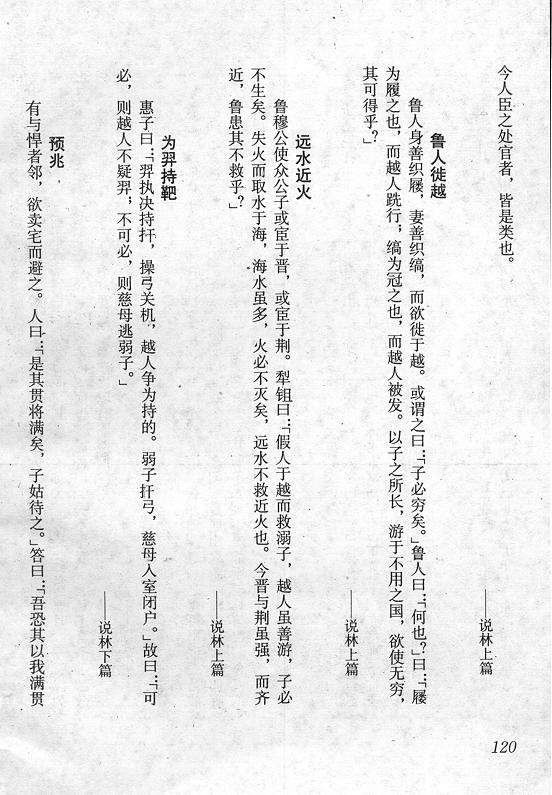 今人臣之处官者，皆是类也。
——说林上篇
鲁人徙越
鲁人身善织屦，妻善织缟，而欲徙于越。或谓之曰：“子必穷矣。”鲁人曰：“何也？”曰：“屦
为履之也，而越人跣行；缟为冠之也，而越人被发。以子之所长，游于不用之国，欲使无穷，
其可得乎？”
——说林上篇
远水近火
鲁穆公使众公子或宦于晋，或宦于荆。犁钼曰：“假人于越而救溺子，越人虽善游，子必
不生矣。失火而取水于海，海水虽多，火必不灭矣，远水不救近火也。今晋与荆虽强，而齐
近，鲁患其不救乎？”
——说林上篇
为羿持靶
惠子曰：“羿执决持扞，操弓关机，越人争为持的。弱子扞弓，慈母入室闭户。”故曰：“可
必，则越人不疑羿；不可必，则慈母逃弱子。”
——说林下篇
预兆
有与悍者邻，欲卖宅而避之。人曰：“是其贯将满矣，子姑待之。”答曰：“吾恐其以我满贯
120